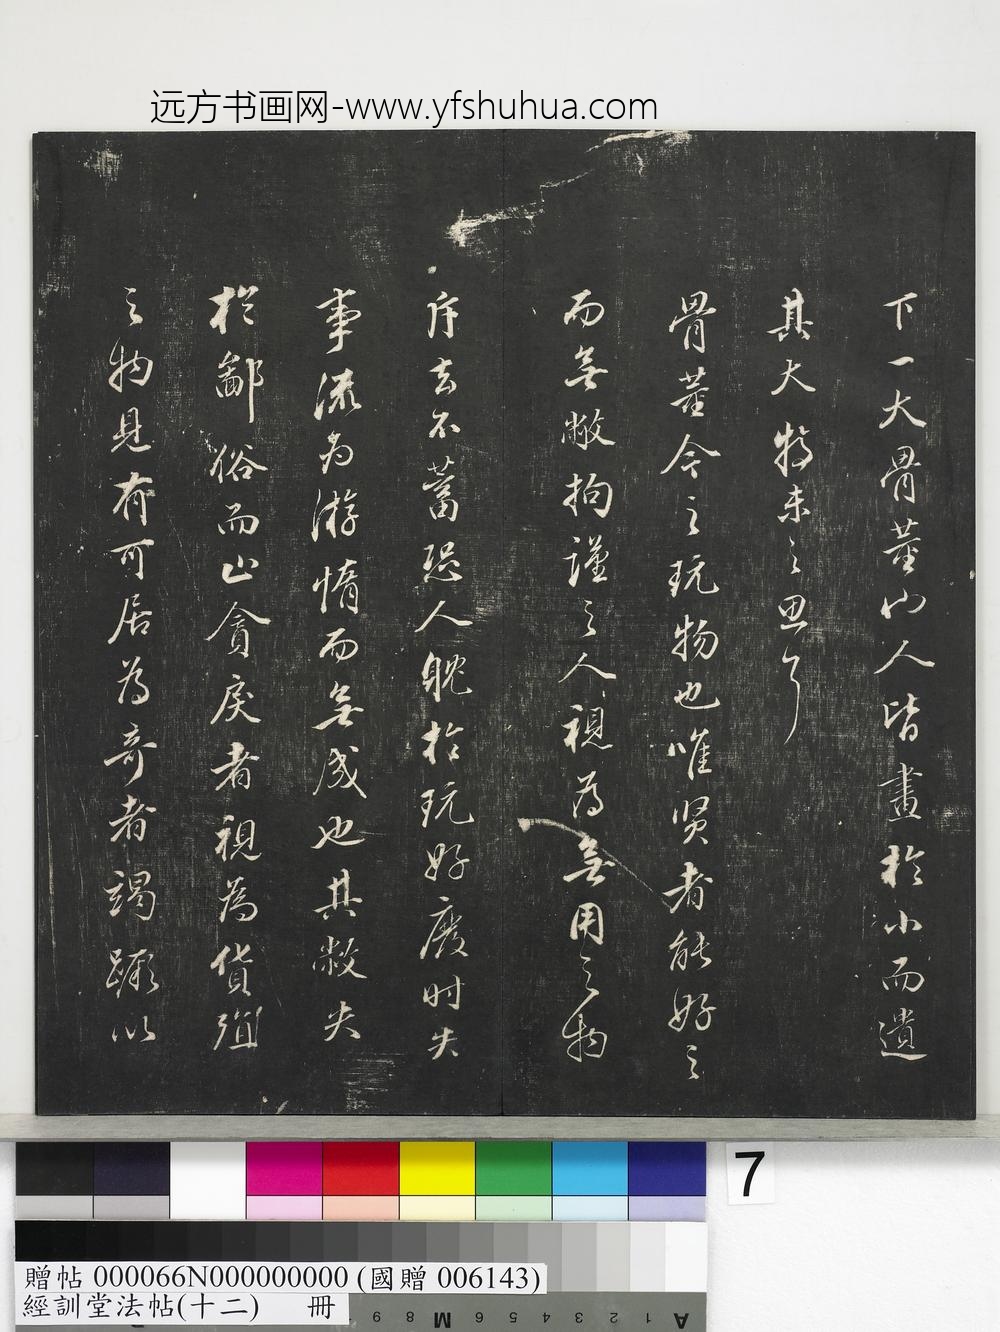 远方书画网-www.yfshuhua.com
下一大骨董而人皆盡於小而遺
其大特未之思耳
骨董今之玩物也唯贤者能好之
而無敝拘謹之人視為無用之物
斥去不蓄恐人耽於玩好廢时失
事流为游惰而無成也其敝失
於鄙俗而山貪戾者視為貨殖
之物見有可居為奇者竭蹶以
7
贈帖 000066N000000000 (國贈 006143)
經訓堂法帖(十二) 冊